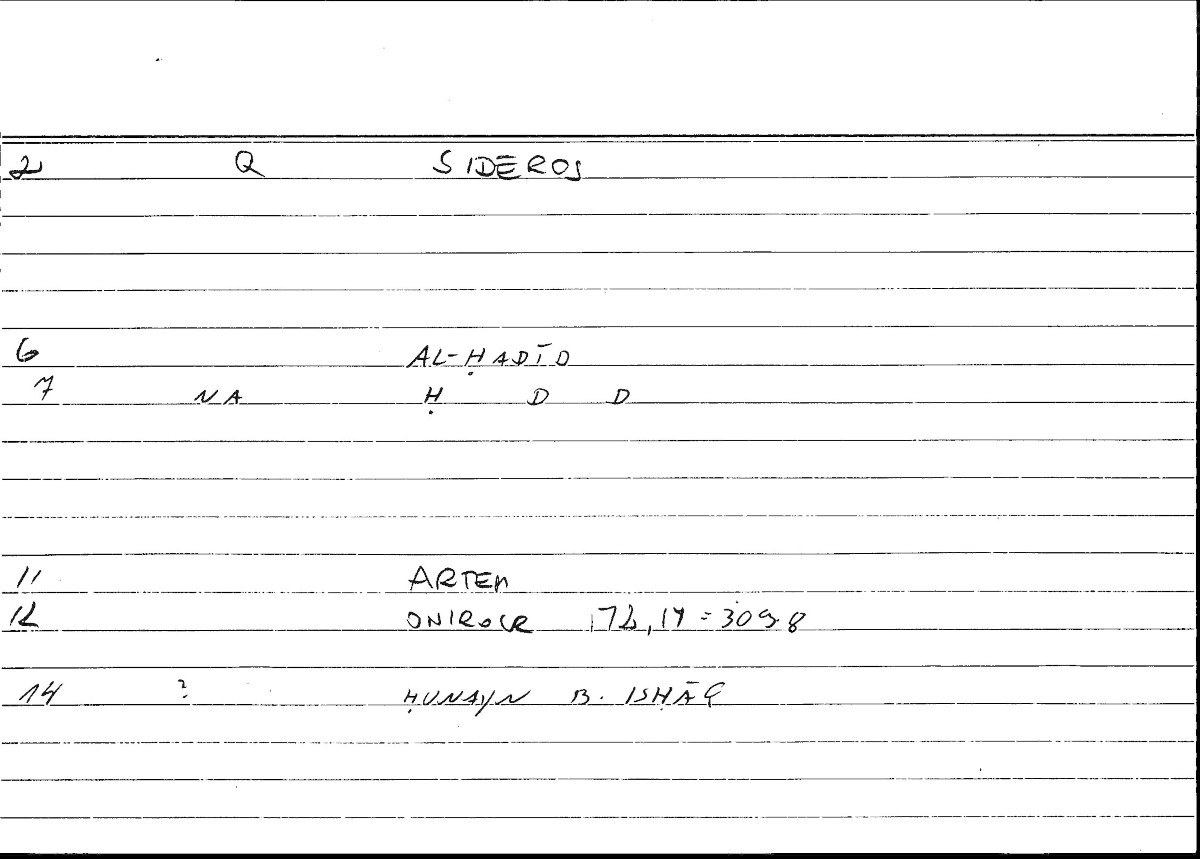 2 Q SIDEROS
6 AL-ḤADĪD
7 NA Ḥ D D
11 ARTEM
12 ONIROCR 172,14 = 309.8
14 ? ḤUNAYN B. ISḤĀQ